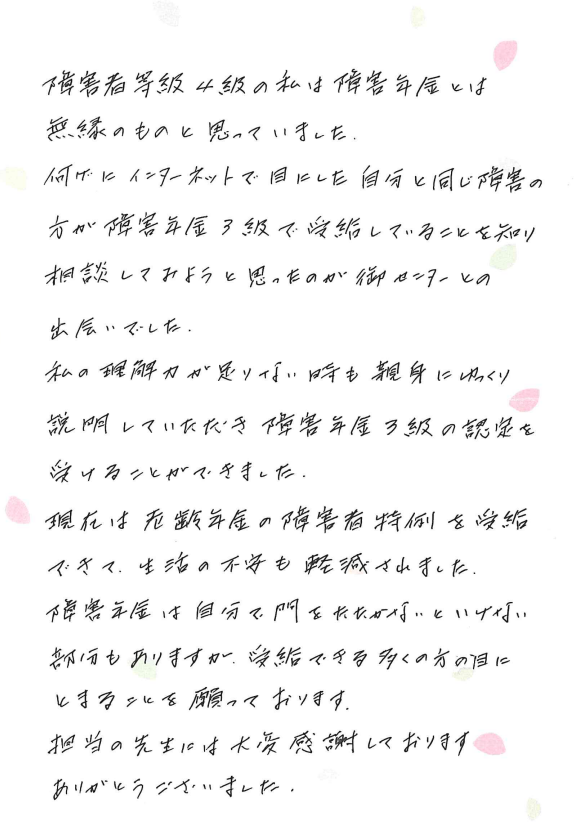 障害者等級4級の私は障害年金とは
無縁のものと思っていました.
何げにインターネットで目にした自分と同じ障害の
方が障害年金3級で受給していることを知り
相談してみようと思ったのが御センターとの
出会いでした.
私の理解力が足りない時も親身にゆっくり
説明していただき障害年金3級の認定を
受けることができました.
現在は老齢年金の障害者特例を受給
できて、生活の不安も軽減されました.
障害年金は自分で門をたたかないといけない
部分もありますが、受給できる多くの方の目に
とまることを願っております.
担当の先生には大変感謝しております
ありがとうございました.